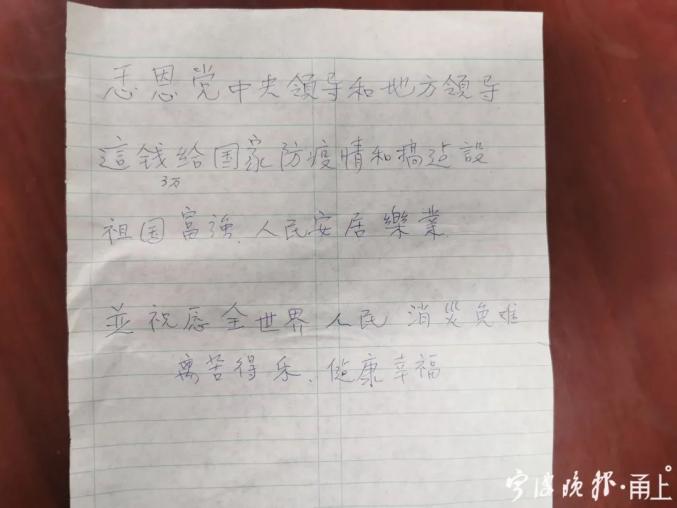 恩党中央領导和地方領导
這钱给国家防疫情和搞建設
3万
祖国富強.人民安居樂業.
並祝愿全世界人民 消災免难
离苦得乐.健康幸福
宁波晚报·甬上